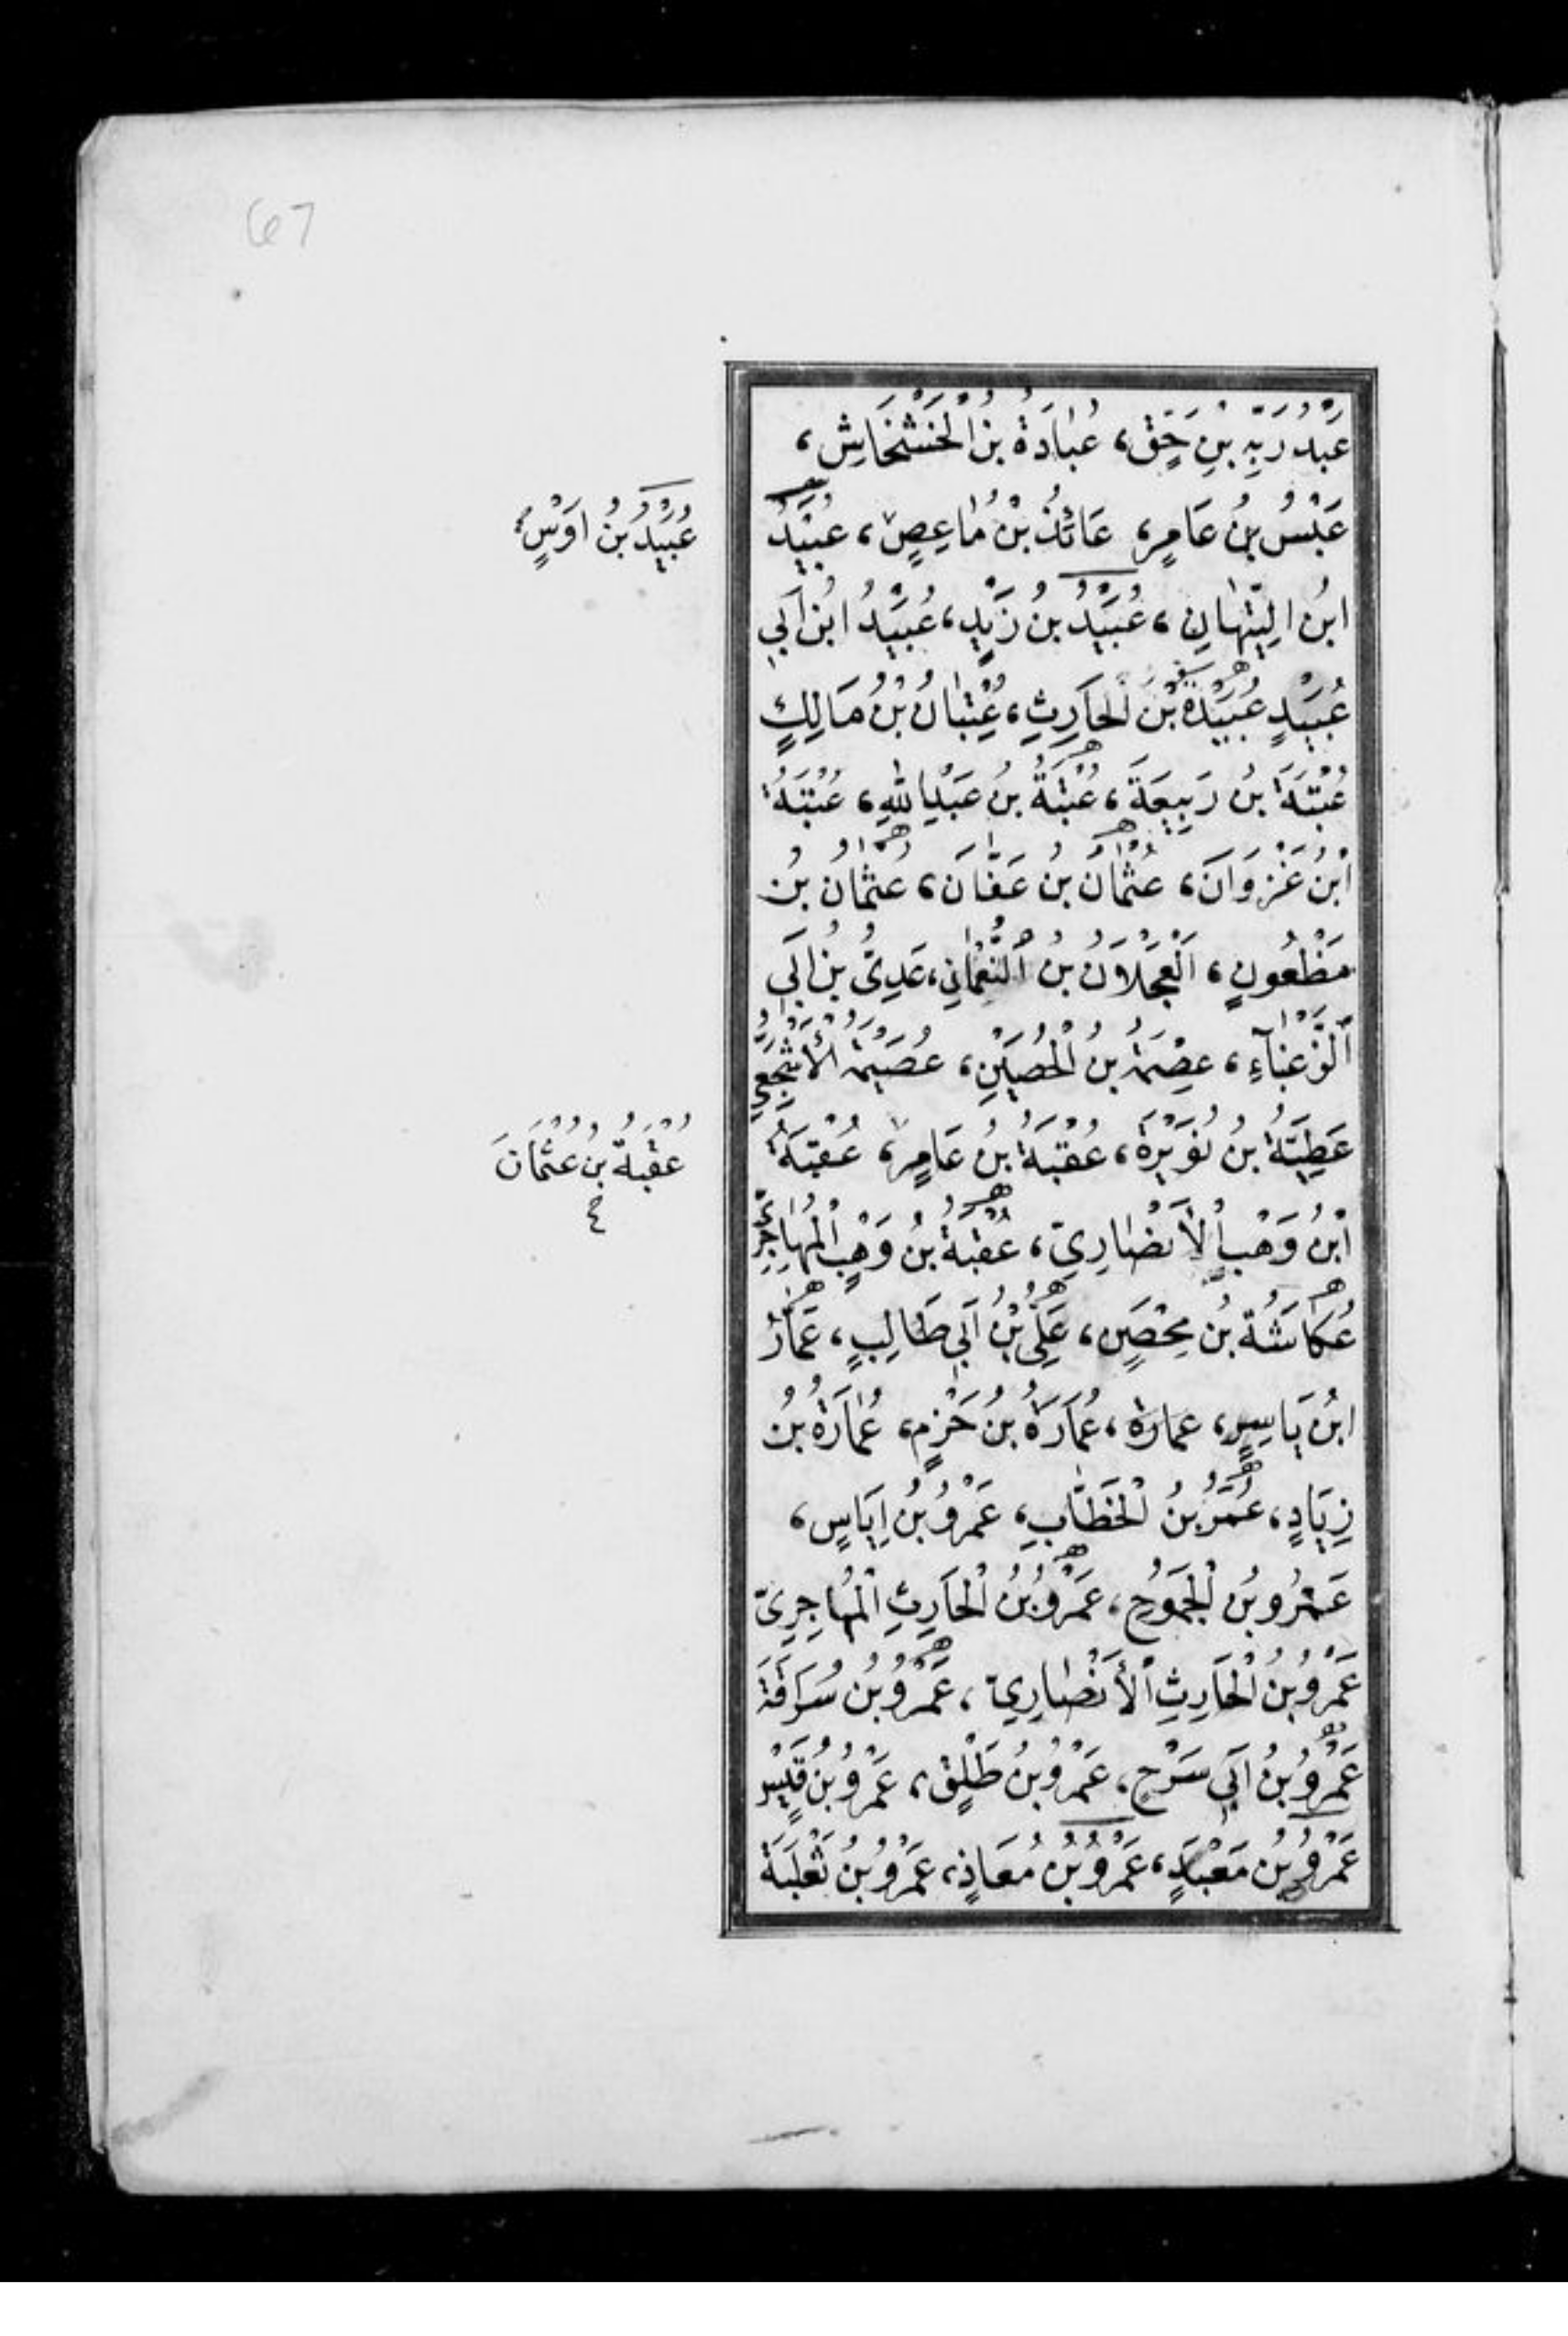 67
عَبْدُ رَبِّهِ بْنِ حَقٍّ، عُبَادَةُ بْنُ الْخَشْخَاشِ،
عَبْسُ بْنُ عَامِرٍ، عَائِذُ بْنُ مَاعِصٍ، عُبَيْدُ
عُبَيْدُ بْنُ اَوْسٍ،
ابْنُ التِّيَّهَانِ، عُبَيْدُ بْنُ زَيْدٍ، عُبَيْدُ ابْنُ اَبِي
عُبَيْدٍ عُبَيْدَةُ بْنُ الْحَارِثِ، عِتْبَانُ بْنُ مَالِكٍ
عُتْبَةُ بْنُ رَبِيعَةَ، عُتْبَةُ بْنُ عَبْدِاللهِ، عُتْبَةُ
ابْنُ غَزْوَانَ، عُثْمَانُ بْنُ عَفَّانَ، عُثْمَانُ بْنُ
مَظْعُونٍ، اَلْعَجْلَانُ بْنُ النُّعْمَانِ، عَدِيُّ بْنُ اَبِي
الزَّغْبَآءِ، عِصْمَةُ بْنُ الْحُصَيْنِ، عُصَيْمَةُ الْأَشْجَعِيُّ
عَطِيَّةُ بْنُ نُوَيْرَةَ، عُقْبَةُ بْنُ عَامِرٍ، عُقْبَةُ
عُقْبَةُ بْنُ عُثْمَانَ
ابْنُ وَهْبٍ الْأَنْصَارِيّ، عُقْبَةُ بْنُ وَهْبٍ الْمُهَاجِرِيّ
عُكَاشَةُ بْنُ مِحْصَنٍ، عَلِيُّ بْنُ اَبِي طَالِبٍ، عَمَّارُ
ابْنُ يَاسِرٍ، عمارة، عُمَارَةُ بْنُ حَزْمٍ، عُمَارَةُ بْنُ
زِيَادٍ، عُمَرُ بْنُ الْخَطَّابِ، عَمْرُو بْنُ اِيَاسٍ،
عَمْرُو بْنُ الْجَمُوحِ، عَمْرُو بْنُ الْحَارِثِ الْمُهَاجِرِيّ
عَمْرُو بْنُ الْحَارِثِ الْأَنْصَارِيّ، عَمْرُو بْنُ سُرَاقَةَ
عَمْرُو بْنُ اَبِي سَرْحٍ، عَمْرُو بْنُ طَلْقٍ، عَمْرُو بْنُ قَيْسٍ
عَمْرُو بْنُ مَعْبَدٍ، عَمْرُو بْنُ مُعَاذٍ، عَمْرُو بْنُ ثَعْلَبَةَ